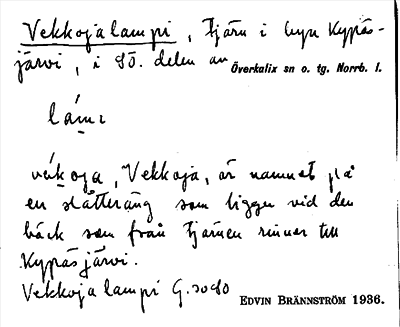 Vekkojalampi, tjärn i byn Kypäs-
järvi, i SÖ. delen av
Överkalix sn o. tg. Norrb. l.
Vekkoja, är namnet på
en slåtteräng som ligger vid den
bäck som från tjärnen rinner till
Kypäsjärvi.
Vekkojalampi
EDVIN BRÄNNSTRÖM 1936.